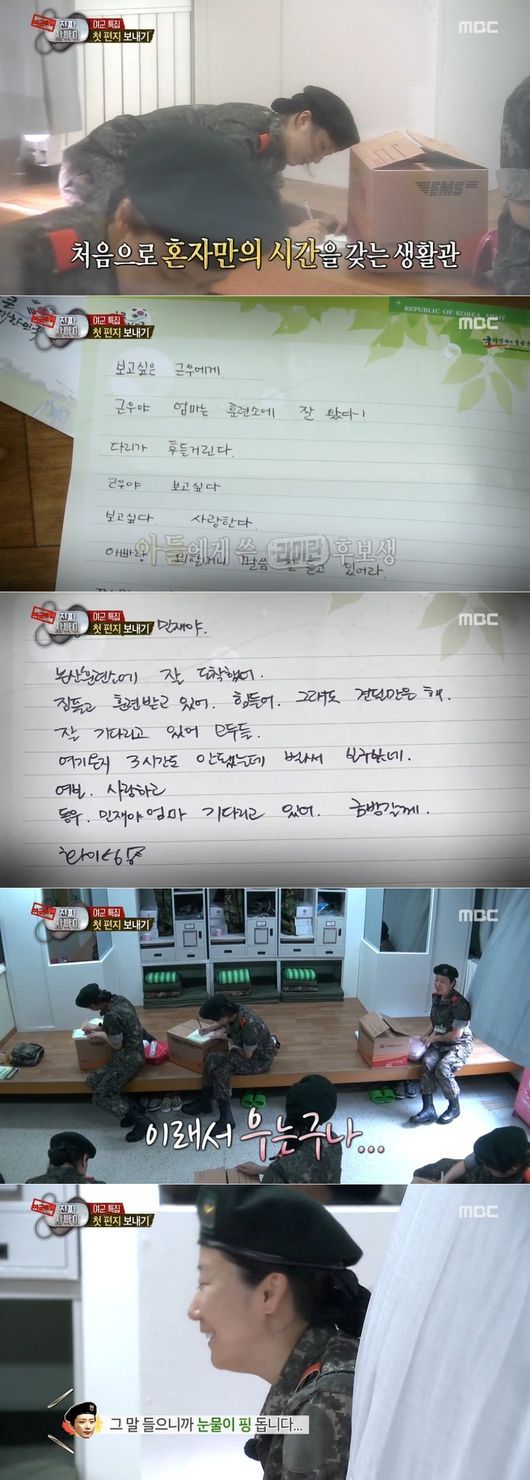 진짜 사나이
여군 특집
첫 편지 보내기
MBC
EMS
처음으로 혼자만의 시간을 갖는 생활관
진짜 사나이
여군 특집
첫 편지 보내기
REPUBLIC OF KOREA ARMY
MBC
보고싶은 근우에게
근우야 엄마는 훈련소에 잘 왔다
다리가 후들거린다.
근우야 보고싶다
보고싶다. 사랑한다.
아빠랑 외할머니 말씀 잘 듣고 있어라.
아들에게 쓴 라미란 후보생
진짜 사나이
여군 특집
첫 편지 보내기
MBC
민재야.
논산훈련소에 잘 도착했어.
짐들고 훈련받고 있어. 힘들어. 그래도 견딜만은 해.
잘 기다리고 있어 모두들.
여기온지 3시간도 안됐는데 벌써
여보. 사랑하고
동우. 민재야 엄마 기다리고 있어. 금방갈께.
진짜 사나이
여군 특집
첫 편지 보내기
MBC
이래서 우는구나...
진짜 사나이
여군 특집
첫 편지 보내기
MBC
그 말 들으니까 눈물이 핑 돕니다...